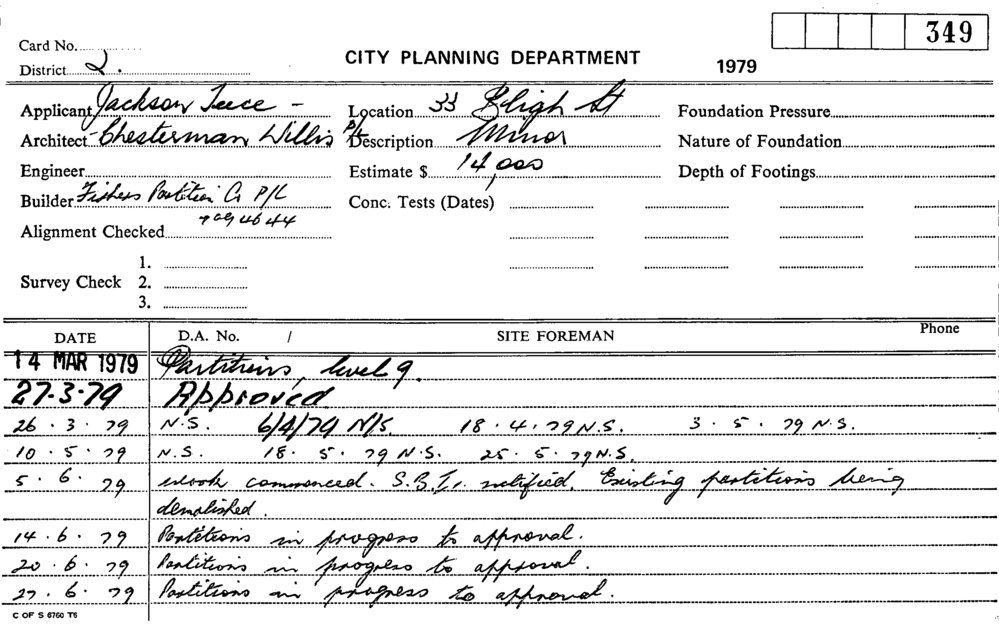 349
Card No.
CITY PLANNING DEPARTMENT
1979
District 2.
Applicant Jackson Teece -
Location 33 Bligh St
Foundation Pressure
Architect - Chesterman Willis P/L
Description Minor
Nature of Foundation
Engineer
Estimate $ 14,000
Depth of Footings
Builder Fishers Partition Co P/L
Conc. Tests (Dates)
709 4644
Alignment Checked
1.
Survey Check 2.
3.
DATE D.A. No. / SITE FOREMAN Phone
14 MAR 1979 Partitions, level 9.
27.3.79 Approved
26.3.79 N.S. 6/4/79 N/S. 18.4.79 N.S. 3.5.79 N.S.
10.5.79 N.S. 18.5.79 N.S. 25.5.79 N.S.
5.6.79 work commenced. S.B.I. notified. Existing partitions being
demolished.
14.6.79 Partitions in progress to approval.
20.6.79 Partitions in progress to approval.
27.6.79 Partitions in progress to approval.
C OF S 6760 T6